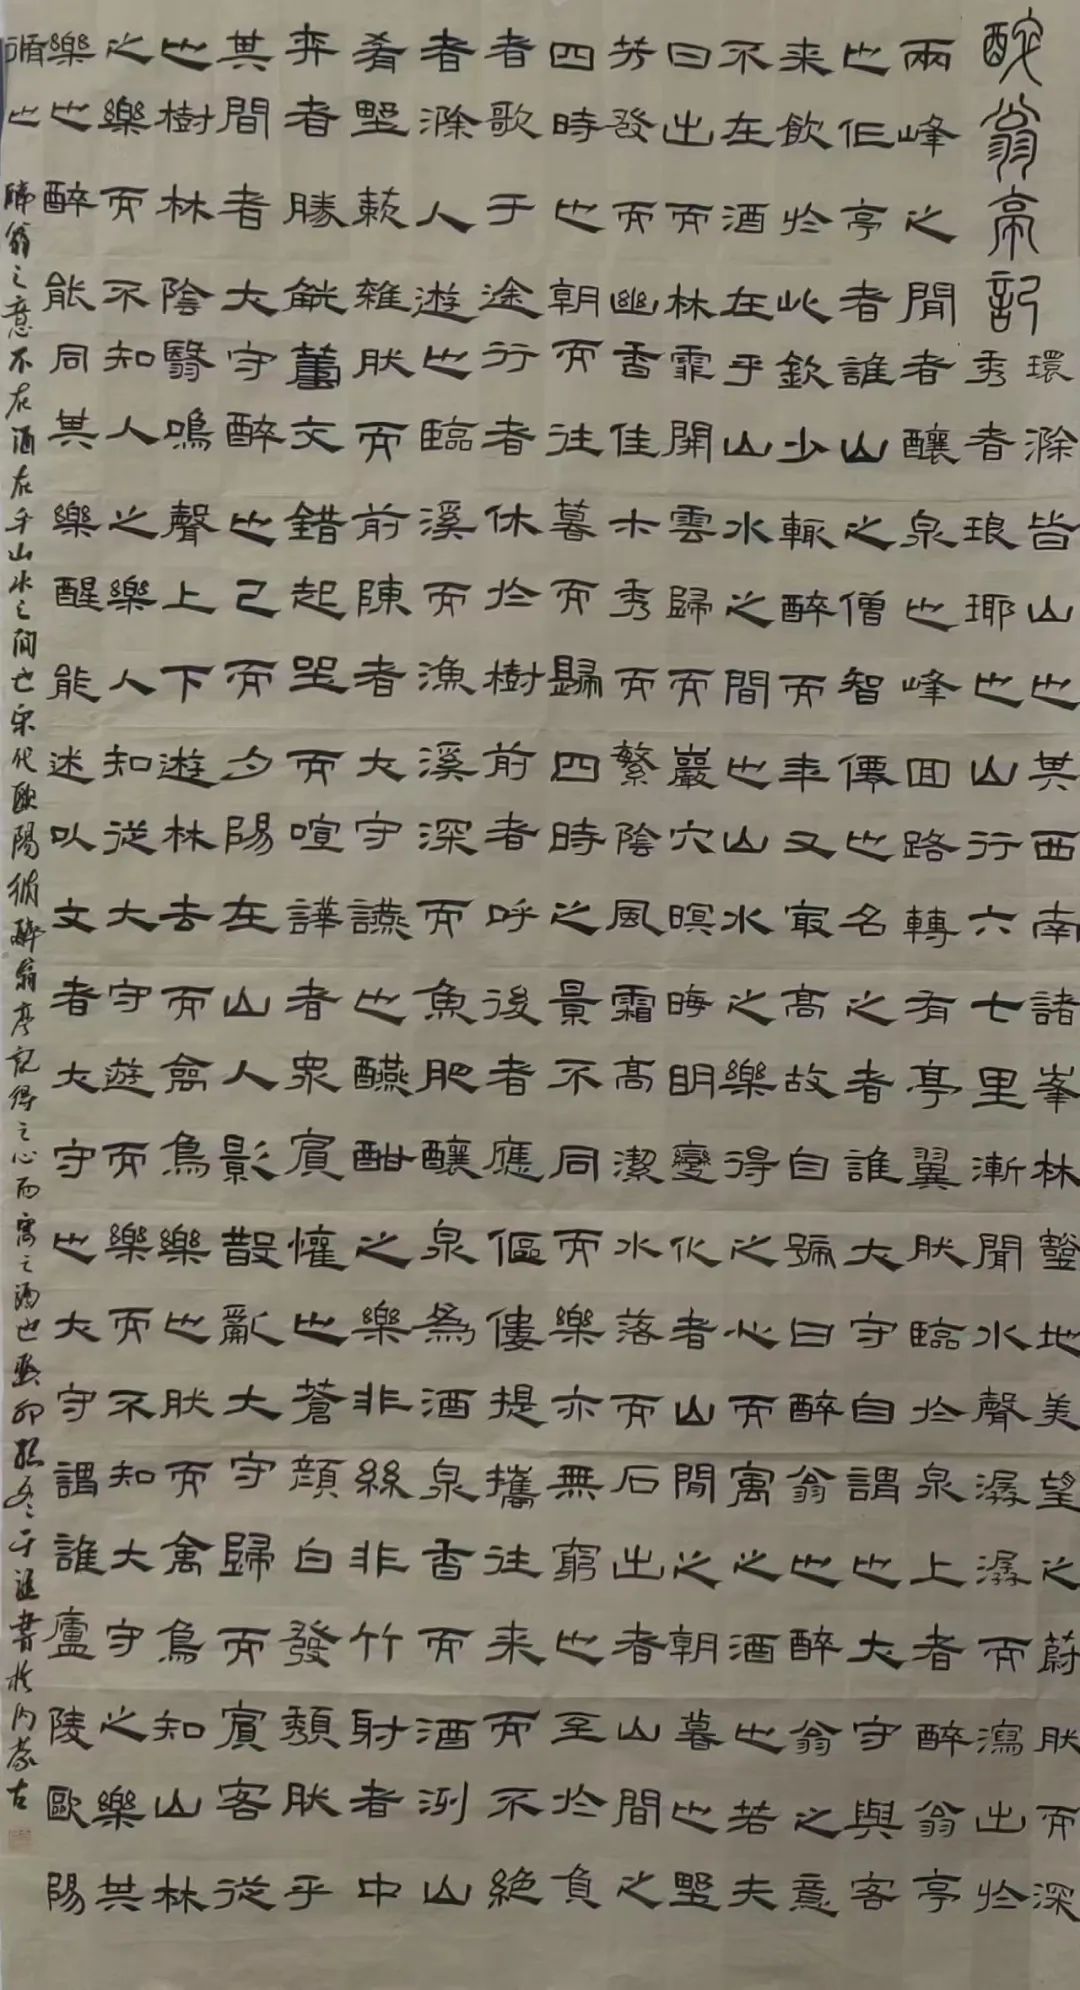 醉翁亭記
環滁皆山也其西南諸峯林壑地美望之蔚肰而深
秀者琅琊也山行六七里漸聞水聲潺潺而瀉出於
兩峰之間者釀泉也峰回路轉有亭翼肰臨於泉上者醉翁亭
也作亭者誰山之僧智僊也名之者誰大守自謂也大守與客
来飲於此飲少輒醉而年又最高故自號曰醉翁也醉翁之意
不在酒在乎山水之間也山水之樂得之心而寓之酒也若夫
日出而林霏開雲歸而巖穴暝晦明變化者山間之朝暮也野
芳發而幽香佳木秀而繁陰風霜高潔水落而石出者山間之
四時也朝而往暮而歸四時之景不同而樂亦無窮也至於負
者歌于途行者休於樹前者呼後者應傴僂提攜往来而不絶
者滁人遊也臨溪而漁溪深而魚肥釀泉為酒泉香而酒洌山
肴野蔌雜肰而前陳者大守讌也醼酣之樂非絲非竹射者中
弈者勝觥籌交錯起坐而喧譁者衆賓懽也蒼顏白發頹肰乎
其間者大守醉也已而夕陽在山人影散亂大守歸而賓客從
也樹林陰翳鳴聲上下遊林去而禽鳥樂也肰而禽鳥知山林
之樂而不知人之樂人知從大守遊而樂而不知大守之樂共
樂也醉能同其樂醒能述以文者大守也大守謂誰廬陵歐陽
脩也
醉翁之意不在酒在乎山水之間也宋代歐陽脩醉翁亭記得之心而寓之酒也癸卯初冬于書於内蒙古